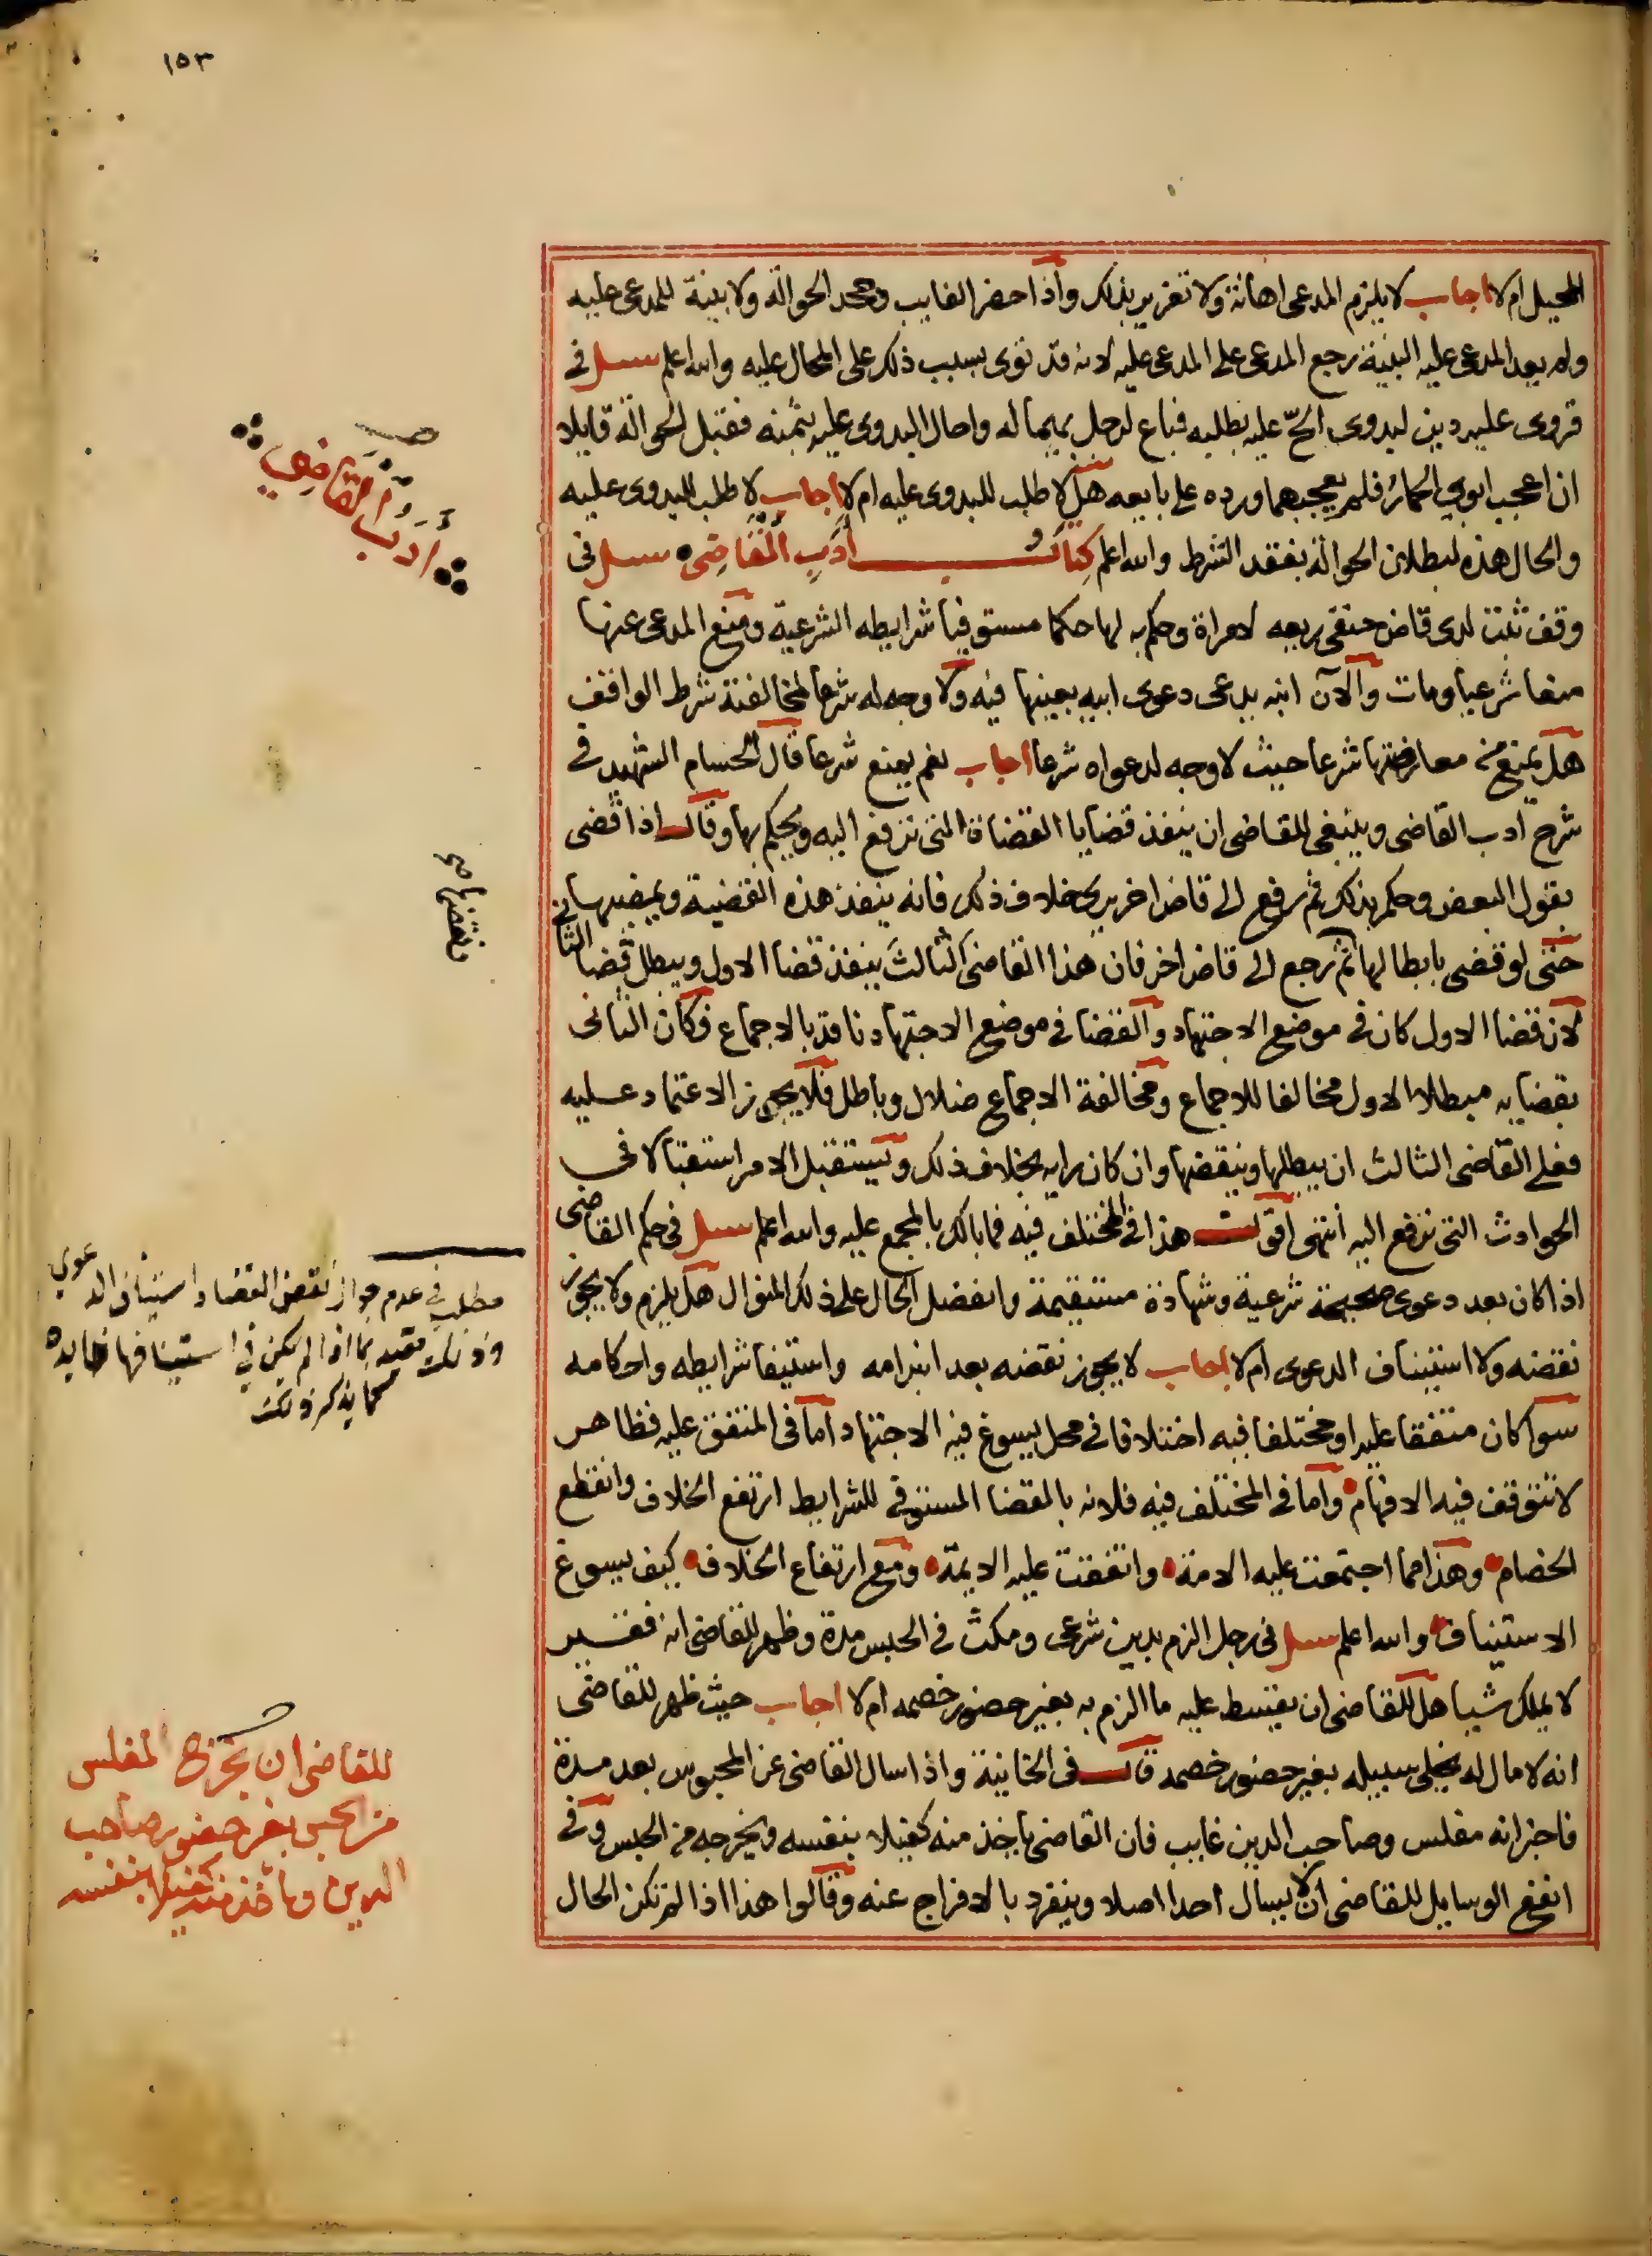 ١٥٣
المحيل ام لا اجاب لا يلزم المدعى اهانة ولا تعزير بذلك واذا حضر الغايب وجحد الحوالة ولا بينة للمدعى عليه
ولم يعد المدعى عليه البينة رجع المدعى على المدعى عليه لانه قد توى بسبب ذلك على المحال عليه والله اعلم سئل في
قروى عليه دين لبدوى الحّ عليه بطلبه فباع لرجل بهيما له واحال البدوى عليه بثمنه فقبل الحوالة قايلا
ان اعجب ابوي الحمار فلم يعجبهما ورده على بايعه هل لا طلب للبدوى عليه ام لا اجاب لا طلب للبدوى عليه
والحال هذه لبطلان الحوالة بفقد الشرط والله اعلم كتاب أدب القاضى سئل في
وقف ثبت لدى قاض حنفى ريعه لامراة وحكم به لها حكما مستوفيا شرايطه الشرعية ومنع المدعى عنها
منعا شرعيا ومات والآن ابنه يدعى دعوى ابيه بعينها فيه ولا وجه له شرعا لمخالفته شرط الواقف
هل يمنع من معارضتها شرعا حيث لا وجه لدعواه شرعا اجاب نعم يمنع شرعا قال الحسام الشهيد في
شرح ادب القاضى وينبغى للقاضى ان ينفذ قضايا القضاة التى ترفع اليه ويحكم بها وقال اذا قضى
بقول البعض وحكم بذلك ثم رفع الى قاض اخر يرى خلاف ذلك فانه ينفذ هذه القضية ويمضيها
حتى لو قضى بابطالها ثم رجع الى قاض اخر فان هذا القاضى الثالث ينفذ قضا الاول ويبطل قضا الثانى
لان قضا الاول كان في موضع الاجتهاد والقضا في موضع الاجتهاد نافد بالاجماع فكان الثانى
بقضايه مبطلا الاول مخالفا للاجماع ومخالفة الاجماع ضلال وباطل فلا يجوز الاعتماد عليه
فعلى القاضى الثالث ان يبطلها وينقضها وان كان رايه بخلاف ذلك ويستقبل الامر استقبالا فى
الحوادث التى ترفع اليه انتهى اقول هذا في المختلف فيه فما بالك بالمجمع عليه والله اعلم سئل في حكم القاضى
اذا كان بعد دعوى صحيحة شرعية وشهادة مستقيمة وانفصل الحال على ذلك المنوال هل يلزم ولا يجوز
نقضه ولا استيناف الدعوى ام لا اجاب لا يجوز نقضه بعد انبرامه واستيفا شرايطه واحكامه
سوا كان متفقا عليه او مختلفا فيه اختلافا في محل يسوغ فيه الاجتهاد اما في المتفق عليه فظاهر
لا تتوقف فيه الافهام واما في المختلف فيه فلانه بالقضا المستوفي للشرايط ارتفع الخلاف وانقطع
الخصام وهذا مما اجتمعت عليه الامة واتفقت عليه الايمة ومع ارتفاع الخلاف كيف يسوغ
الاستيناف والله اعلم سئل في رجل الزم بدين شرعى ومكث في الحبس مدة وظهر للقاضى انه فقير
لا يملك شيا هل للقاضى ان يقسط عليه ما الزم به بغير حضور خصمه ام لا اجاب حيث ظهر للقاضى
انه لا مال له يخلى سبيله بغير حضور خصمه قال في الخانية واذا سال القاضى عن المحبوس بعد مدة
فاخبر انه مفلس وصاحب الدين غايب فان القاضى ياخذ منه كفيلا بنفسه ويخرجه من الحبس وفي
انفع الوسايل للقاضى ان لا يسال احدا اصلا وينفرد بالافراج عنه وقالوا هذا اذا لم تكن الحال
أدب القاضي
مطلب في عدم جواز نقض القضا واستيناف الدعوى
وذلك مقيد بما اذا لم يكن في استينافها فايده
كما يذكر ذلك
للقاضى ان يخرج المفلس
من الحبس بغير حضور صاحب
الدين وياخذ منه كفيلا بنفسه